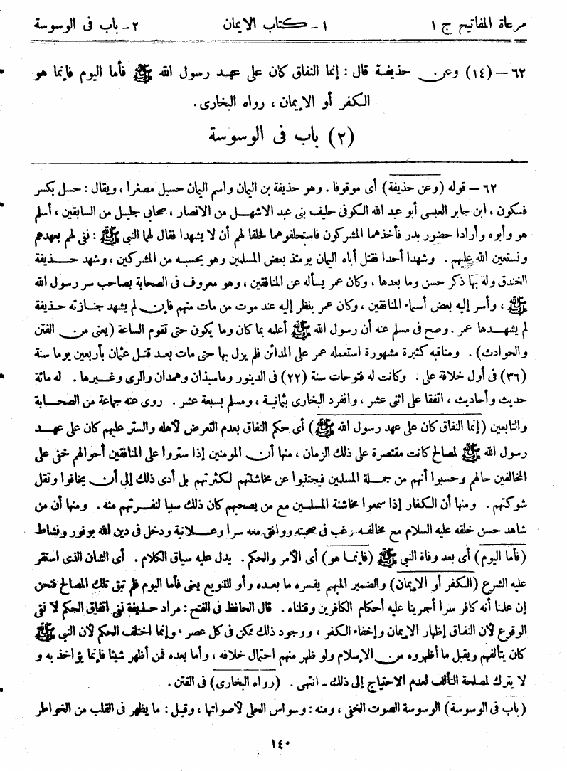 مرعاة المفاتيح ج ١ ١- كتاب الإيمان ٢- باب فى الوسوسة
٦٢ – (١٤) وعن حذيفة قال: إنما النفاق كان على عهد رسول الله ﷺ فأما اليوم فإنما هو
الكفر أو الإيمان، رواه البخارى.
(٢) باب فى الوسوسة
٦٢ – قوله (وعن حذيفة) أى موقوفا. وهو حذيفة بن اليمان واسم اليمان حسيل مصغرا، ويقال: حسل بكسر
فسكون، ابن جابر العبسى أبو عبد الله الكوفى حليف بنى عبد الأشهل من الأنصار، صحابى جليل من السابقين، أسلم
هو وأبوه وأرادا حضور بدر فأخذهما المشركون فاستحلفوهما فحلفا لهم أن لا يشهدا فقال لهما النبى ﷺ: نفى لهم بعهدهم
ونستعين الله عليهم. وشهدا أحدا فقتل أباه اليمان يومئذ بعض المسلمين وهو يحسبه من المشركين، وشهد حذيفة
الخندق وله بها ذكر حسن وما بعدها، وكان عمر يسأله عن المنافقين، وهو معروف فى الصحابة بصاحب سر رسول الله
ﷺ، وأسر إليه بعض أسماء المنافقين، وكان عمر ينظر إليه عند موت من مات منهم فإن لم يشهد جنازته حذيفة
لم يشهدها عمر. وصح فى مسلم عنه أن رسول الله ﷺ أعلمه بما كان وما يكون حتى تقوم الساعة (يعنى من الفتن
والحوادث). ومناقبه كثيرة مشهورة استعمله عمر على المدائن فلم يزل بها حتى مات بعد قتل عثمان بأربعين يوما سنة
(٣٦) فى أول خلافة على. وكانت له فتوحات سنة (٢٢) فى الدينور وماسبذان وهمدان والرى وغيرها. له مائة
حديث وأحاديث، اتفقا على اثنى عشر، وانفرد البخارى بثمانية، ومسلم بسبعة عشر. روى عنه جماعة من الصحابة
والتابعين (إنما النفاق كان على عهد رسول الله ﷺ) أى حكم النفاق بعدم التعرض لأهله والستر عليهم كان على عهد
رسول الله ﷺ لمصالح كانت مقتصرة على ذلك الزمان، منها أن المؤمنين إذا ستروا على المنافقين أحوالهم خفى على
المخالفين حالهم وحسبوا أنهم من جملة المسلمين فيجتنبوا عن مخاشنتهم لكثرتهم بل أدى ذلك إلى أن يخافوا وتقل
شوكتهم. ومنها أن الكفار إذا سمعوا مخاشنة المسلمين مع من يصحبهم كان ذلك سببا لنفرتهم منه. ومنها أن من
شاهد حسن خلقه عليه السلام مع مخالفه رغب فى صحبته ووافق معه سرا وعلانية ودخل فى دين الله بوفور ونشاط
(فأما اليوم) أى بعد وفاة النبى ﷺ (فإنما هو) أى الأمر والحكم. يدل عليه سياق الكلام. أى الشان الذى استقر
عليه الشرع (الكفر أو الإيمان) والضمير المبهم يفسره ما بعده وأو للتنويع يعنى فأما اليوم فلم تبق تلك المصالح فنحن
إن علمنا أنه كافر سرا أجرينا عليه أحكام الكافرين وقتلناه. قال الحافظ فى الفتح: مراد حذيفة نفى اتفاق الحكم لا نفى
الوقوع لأن النفاق إظهار الإيمان وإخفاء الكفر، ووجود ذلك ممكن فى كل عصر، وإنما اختلف الحكم لأن النبى ﷺ
كان يتألفهم ويقبل ما أظهروه من الإسلام ولو ظهر منهم احتمال خلافه، وأما بعده فمن أظهر شيئا فإنما يؤاخذ به و
لا يترك لمصلحة التألف لعدم الاحتياج إلى ذلك – انتهى. (رواه البخارى) فى الفتن.
(باب فى الوسوسة) الوسوسة الصوت الخفى، ومنه: وسواس الحلى لأصواتها، وقيل: ما يظهر فى القلب من الخواطر
١٤٠